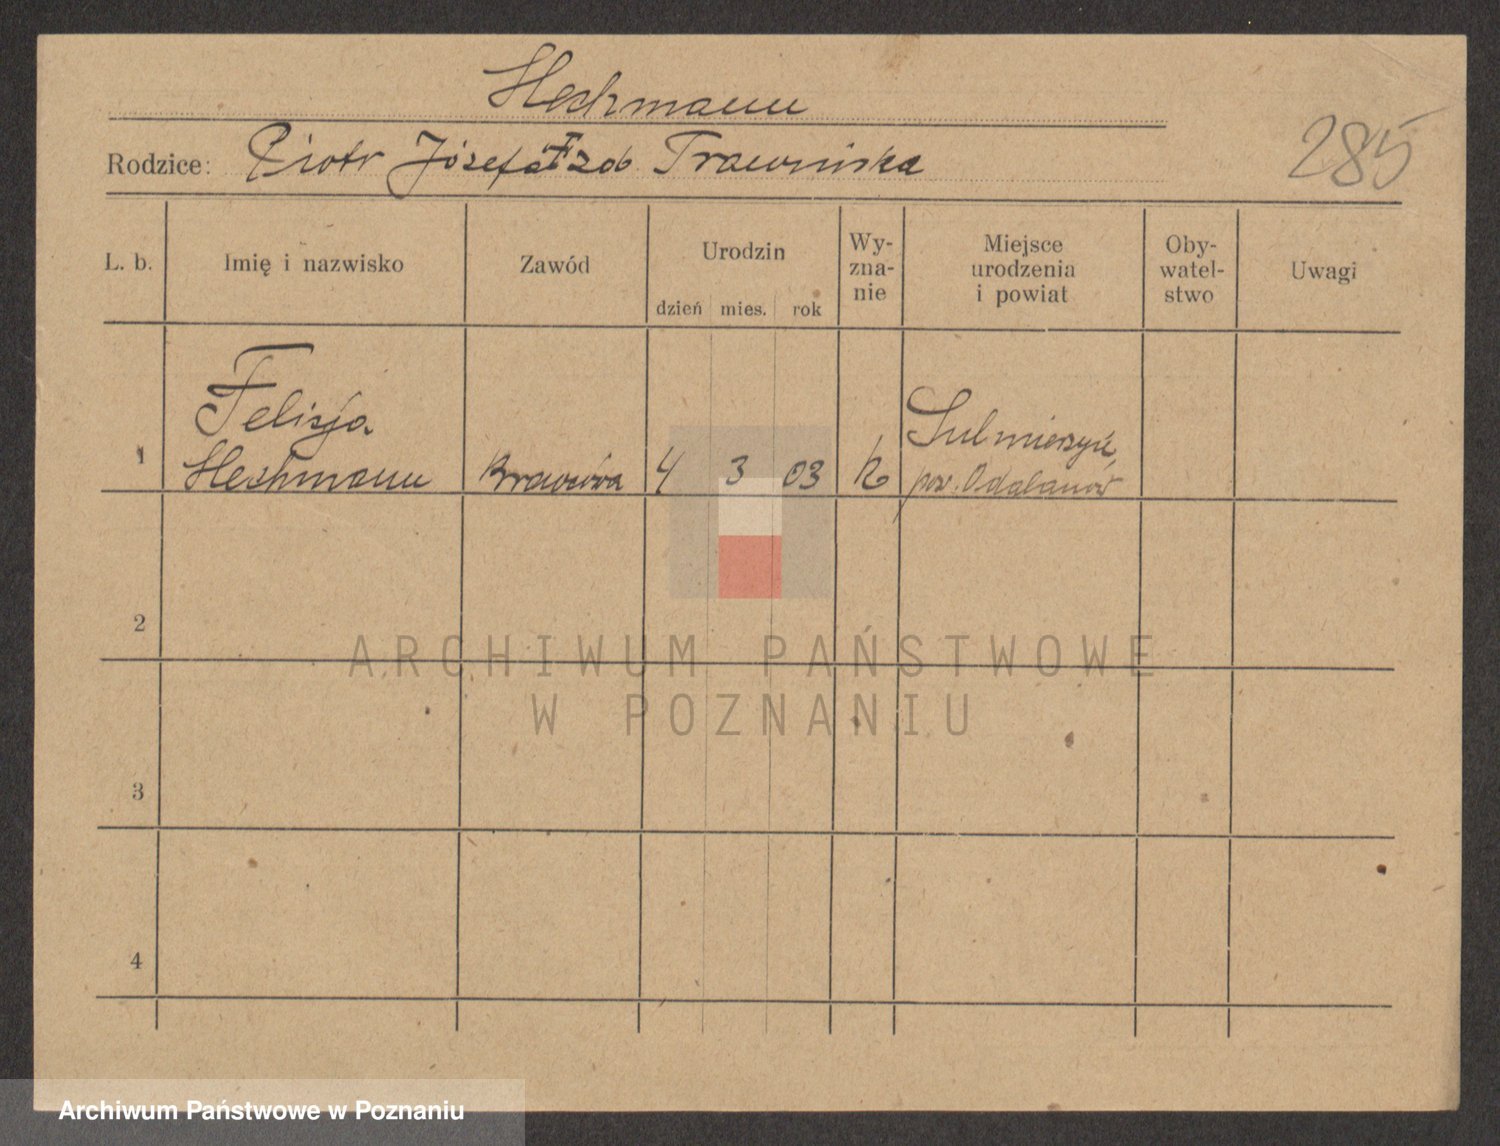 Heckmann
Rodzice: Piotr Józefa z ob Trawińska
285
L. b. Imię i nazwisko Zawód Urodzin Wy-zna-nie Miejsce urodzenia i powiat Oby-watel-stwo Uwagi
dzień mies. rok
Felicja
1 Heckmann Krawcowa 4 3 03 k Sulmierzyce,
pow. Odolanów
2
3
4
ARCHIWUM PAŃSTWOWE
W POZNANIU
Archiwum Państwowe w Poznaniu